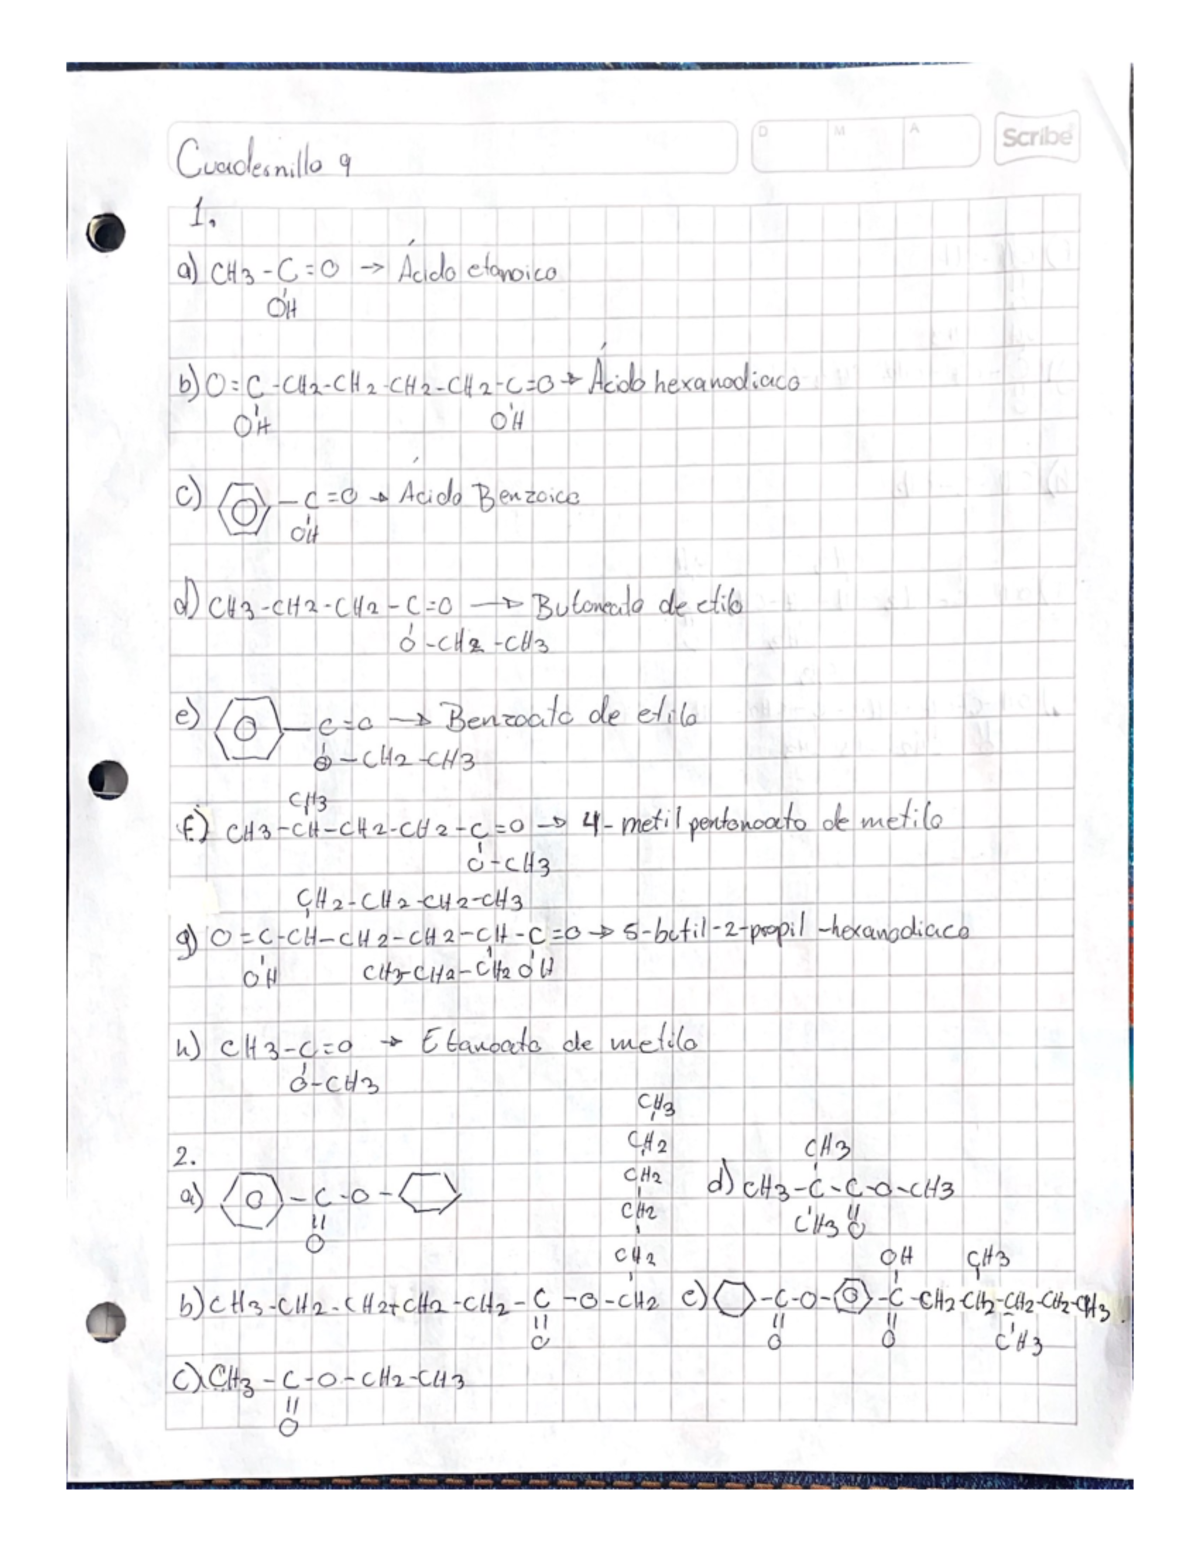 Scribe
D M A
Cuadernillo 9
1.
a) CH3-C=O → Ácido etanoico
OH
b) O=C-CH2-CH2-CH2-CH2-C=O → Ácido hexanodiaco
OH OH
c) -C=O → Ácido Benzoico
OH
d) CH3-CH2-CH2-C=O → de etilo
O-CH2-CH3
e) -C=O → Benzoato de etilo
O-CH2-CH3
CH3
f) CH3-CH-CH2-CH2-C=O → 4-metil pentanoato de metilo
O-CH3
CH2-CH2-CH2-CH3
g) O=C-CH-CH2-CH2-CH-C=O → 5-butil-2-propil-hexanodiaco
OH CH3-CH2-CH2 OH
h) CH3-C=O → Etanoato de metilo
O-CH3
2.
a) -C-O-
O
CH3
CH2
CH2
CH2
CH2
b) CH3-CH2-CH2-CH2-CH2-C-O-CH2
O
c) CH3-C-O-CH2-CH3
O
CH3
d) CH3-C-C-O-CH3
CH3 O
OH CH3
e) -C-O- -C-CH2-CH2-CH2-CH2-CH3
O O CH3